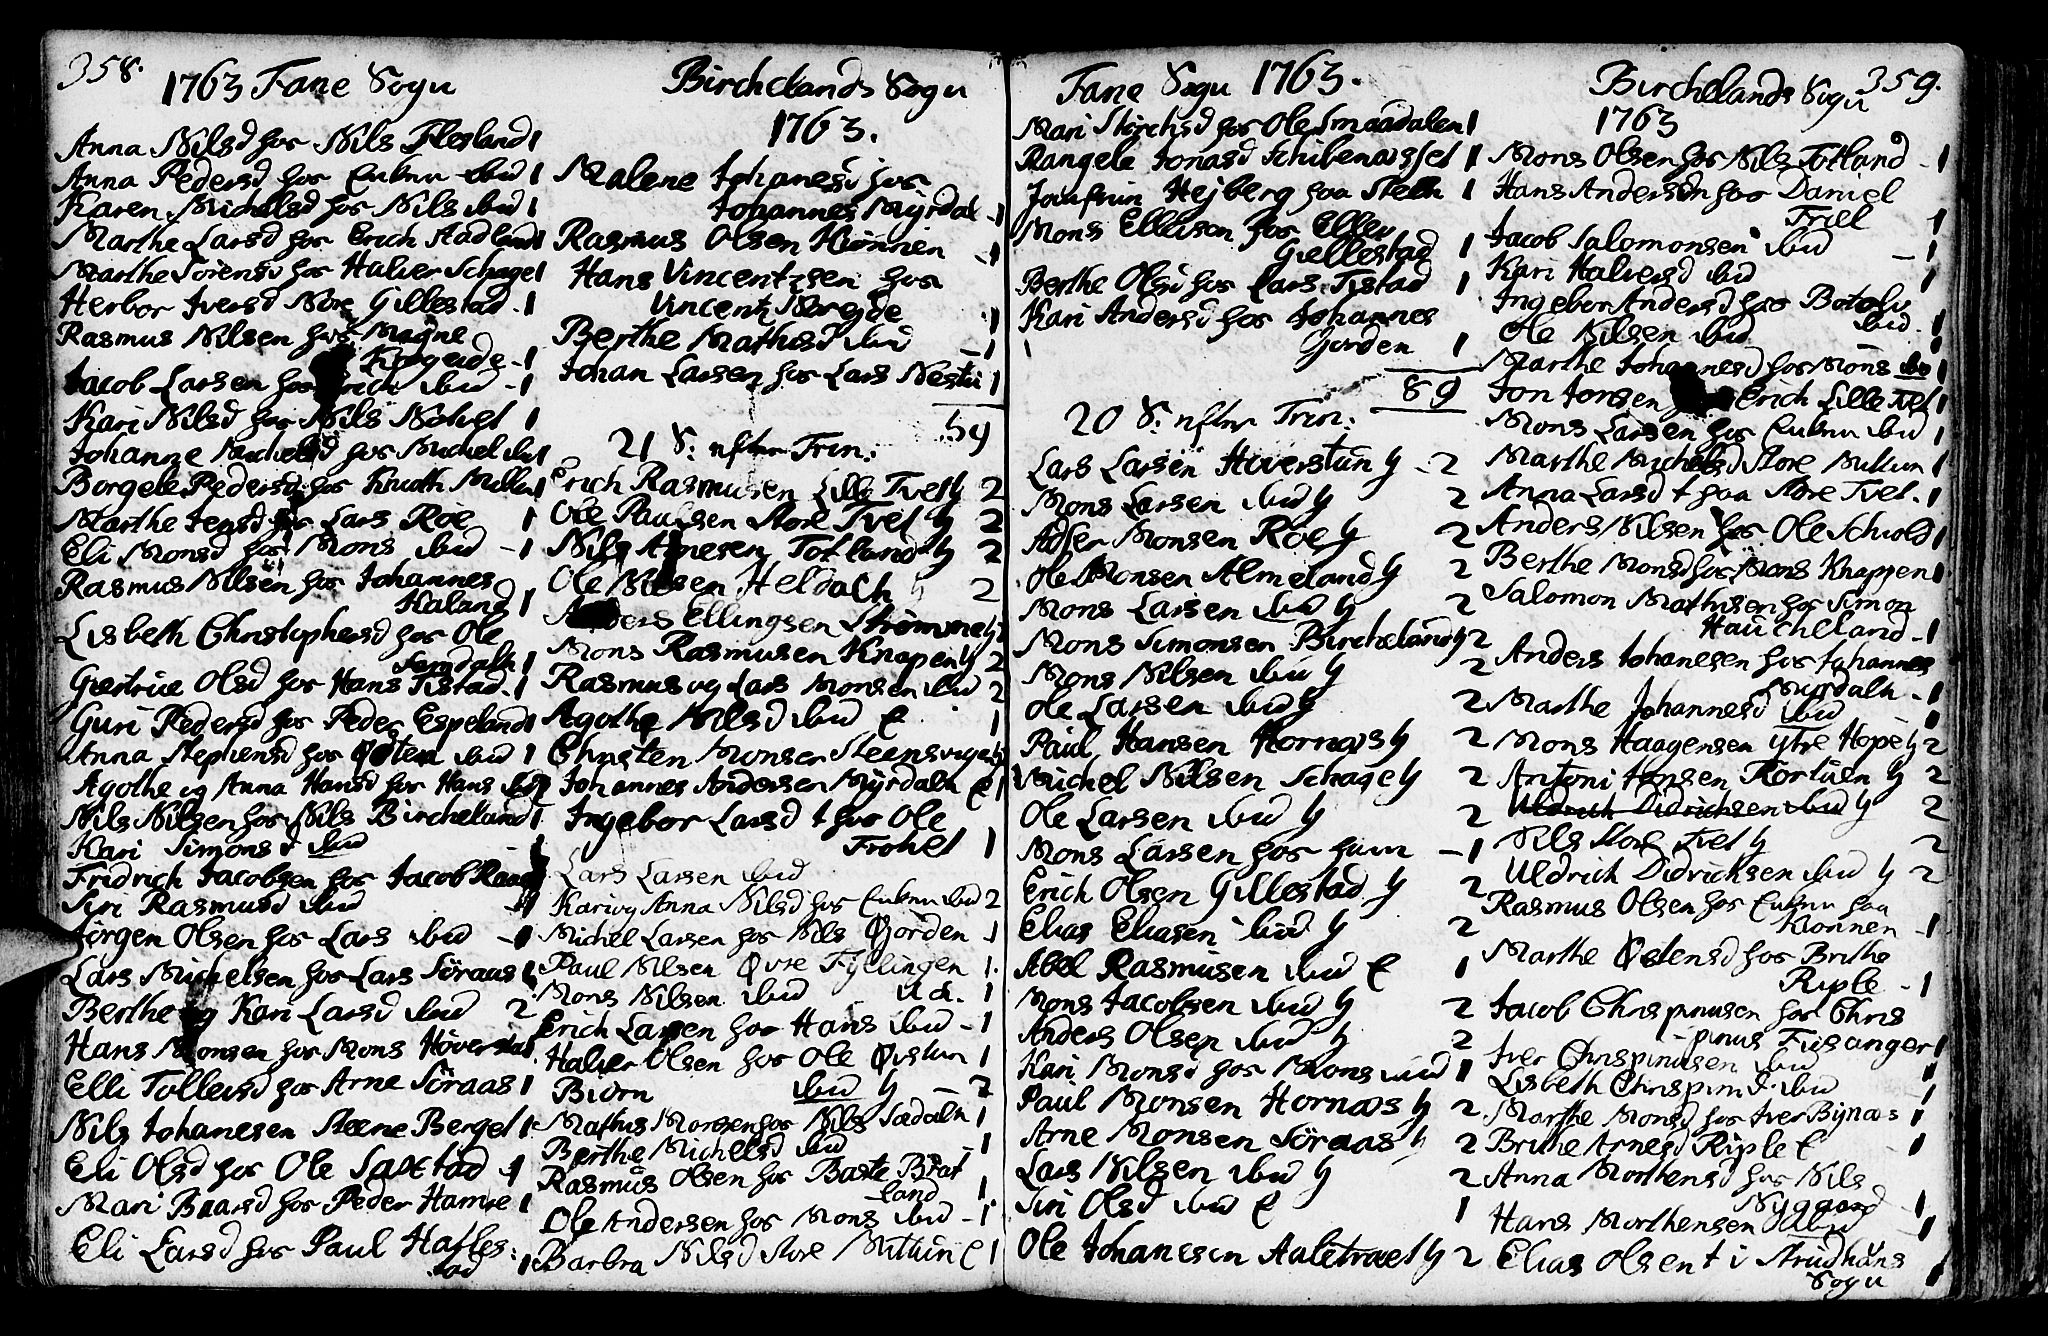 358.
1763 Fane Sogn
Anna Nilsd hos Nils Flesland 1
Anna Pedersd hos ibid 1
Karen Michelsd hos Nils ibid 1
Marthe Larsd hos Erich Aadland 1
Marthe Sørensd hos Halver Schage 1
Herbor Iversd Nore Gillestad. 1
Rasmus Nilsen hos Magne
Krogeide - 1
Jacob Larsen hos Erich ibid - 1
Kari Nilsd hos Nils 1
Johanne Michelsd hos Michel ibid 1
Borgele Pedersd hos Knuth 1
Marthe Jensd hos Lars Roe 1
Eli Monsd hos Mons ibid - 1
Rasmus Nilsen hos Johannes
Kaland 1
Lisbeth Christophersd hos Ole
Samdaln 1
Giertrue Olsd hos Hans Tistad. 1
Guri Pedersd hos Peder Espeland 1
Anna Stephensd hos Østen ibid 1
Agothe og Anna Hansd hos Hans ibid 2
Nils Nilsen hos Nils Bircheland 1
Kari Simonsd ibid
Fridrich Jacobsen hos Jacob
Siri Rasmusd ibid 1
Jørgen Olsen hos Lars ibid - 1
Lars Michelsen hos Lars Søraas 1
Berthe og Kari Larsd ibid 2
Hans Monsen hos Mons Høverstun
Elli Tollevsd hos Arne Søraas 1
Nils Johanesen Steene Berget 1
Eli Olsd hos Ole Saxtad 1
Mari Baarsd hos Peder Hamre 1
Eli Larsd hos Paul Hafles:
tad 1
Birchelands Sogn
1763.
Malene Johanesd hos
Johannes Myrdal - 1
Rasmus Olsen Kiønnen - 1
Hans Vincentzen hos
Vincentz Noreyde 1
Berthe Mathisd ibid - 1
Johan Larsen hos Lars Nestu 1
59
21 S: efter Trin:
Erich Rasmusen Lille Tvet 2
Ole Paulsen Store Tvet 2
Nils Arnesen Totland 2
Ole Nilsen Heldaln 2
Anders Ellingsen Strømme 2
Mons Rasmusen Knapen 2
Rasmus og Lars Monsen ibid 2
Agothe Nilsd ibid 1
Christen Monsen Steensvigen
Johannes Andersen Myrdaln 1
Ingebor Larsd t hos Ole
Frohet 1
Lars Larsen ibid
Kari og Anna Nilsd hos ibid 2
Michel Larsen hos Nils Gjorden 1
Paul Nilsen Øvre Fyllingen 1.
Mons Nilsen ibid 1
Erich Larsen hos Hans ibid - 1
Halver Olsen hos Ole Østun 1
Biørn ibid - 2
Mathis Monsen hos Nils Sædaln 1
Berthe Michelsd ibid - 1
Rasmus Olsen hos Baste Brat
land 1.
Ole Andersen hos Mons ibid - 1
Barbra Nilsd Store Mittun 1
Fane Sogn 1763.
Mari Størchsd hos Ole Smaadalen 1
Rangele Jonasd Schibenæsset 1
Jomfruen Hejberg paa Stedn 1
Mons Ellisen hos Ellis
Giellestad 1
Berthe Olsd hos Lars Tistad 1
Kari Andersd hos Johannes
Gjorden 1
89
20 S: efter Trin:
Lars Larsen Høverstun - 2
Mons Larsen ibid 2
Adser Monsen Roe 2
Ole Monsen Almeland 2
Mons Larsen ibid 2
Mons Simonsen Bircheland 2
Mons Nilsen ibid 2
Ole Larsen ibid 2
Paul Hansen Hornæs 2
Michel Nilsen Schage 2
Ole Larsen ibid 2
Mons Larsen hos ham - 1
Erich Olsen Gillestad 2
Elias Eliasen ibid 2
Abel Rasmusen ibid 1
Mons Jacobsen ibid 2
Anders Olsen ibid 2
Kari Monsd hos Mons ibid 1
Paul Monsen Hornæs 2
Arne Monsen Søraas 2
Lars Nilsen ibid 2
Siri Olsd ibid 1
Ole Johanesen Aaletræet 2
Birchelands Sogn 359.
1763
Mons Olsen hos Nils Totland - 1
Hans Andersen hos Daniel
Titel 1
Jacob Salomonsen ibid - 1
Kari Halversd ibid 1
Ingebor Andersd hos Botolv
ibid. 1
Ole Nilsen ibid 1
Marthe Johannesd hos Mons ibid 1
Jon Jonsen Erich Lille Tvet 1
Mons Larsen hos ibid 1
Marthe Michelsd Store Mittun 1
Anna Larsd t paa Store Tvet. 1
Anders Nilsen hos Ole Schiold 1
Berthe Monsd hos Mons Knappen 1
Salomon Mathisen hos Simon
Haucheland - 1
Anders Johanesen hos Johannes
Myrdaln - 1
Marthe Johannesd ibid 1
Mons Haagensen ytre Hope 2
Antoni Hansen Kortuen 2
Uldrich Didrichsen ibid 2
Nils Store Tvet 2
Uldrich Didrichsen ibid 2
Rasmus Olsen hos paa
Kiønnen - 1
Marthe Østensd hos Brithe
Riple - 1
Jacob Chrispinusen hos Chris
-pinus Fusanger 1
Iver Chrispinusen ibid 1
Lisbeth Chrispinusd. ibid 1
Marthe Monsd hos Iver Bynæs 1
Brithe Arnesd Riple - 1
Anna Morthensd hos Nils
Nygaard - 1
Hans Morthensen ibid 1
Elias Olsen t i Strudhavns
Sogn 1